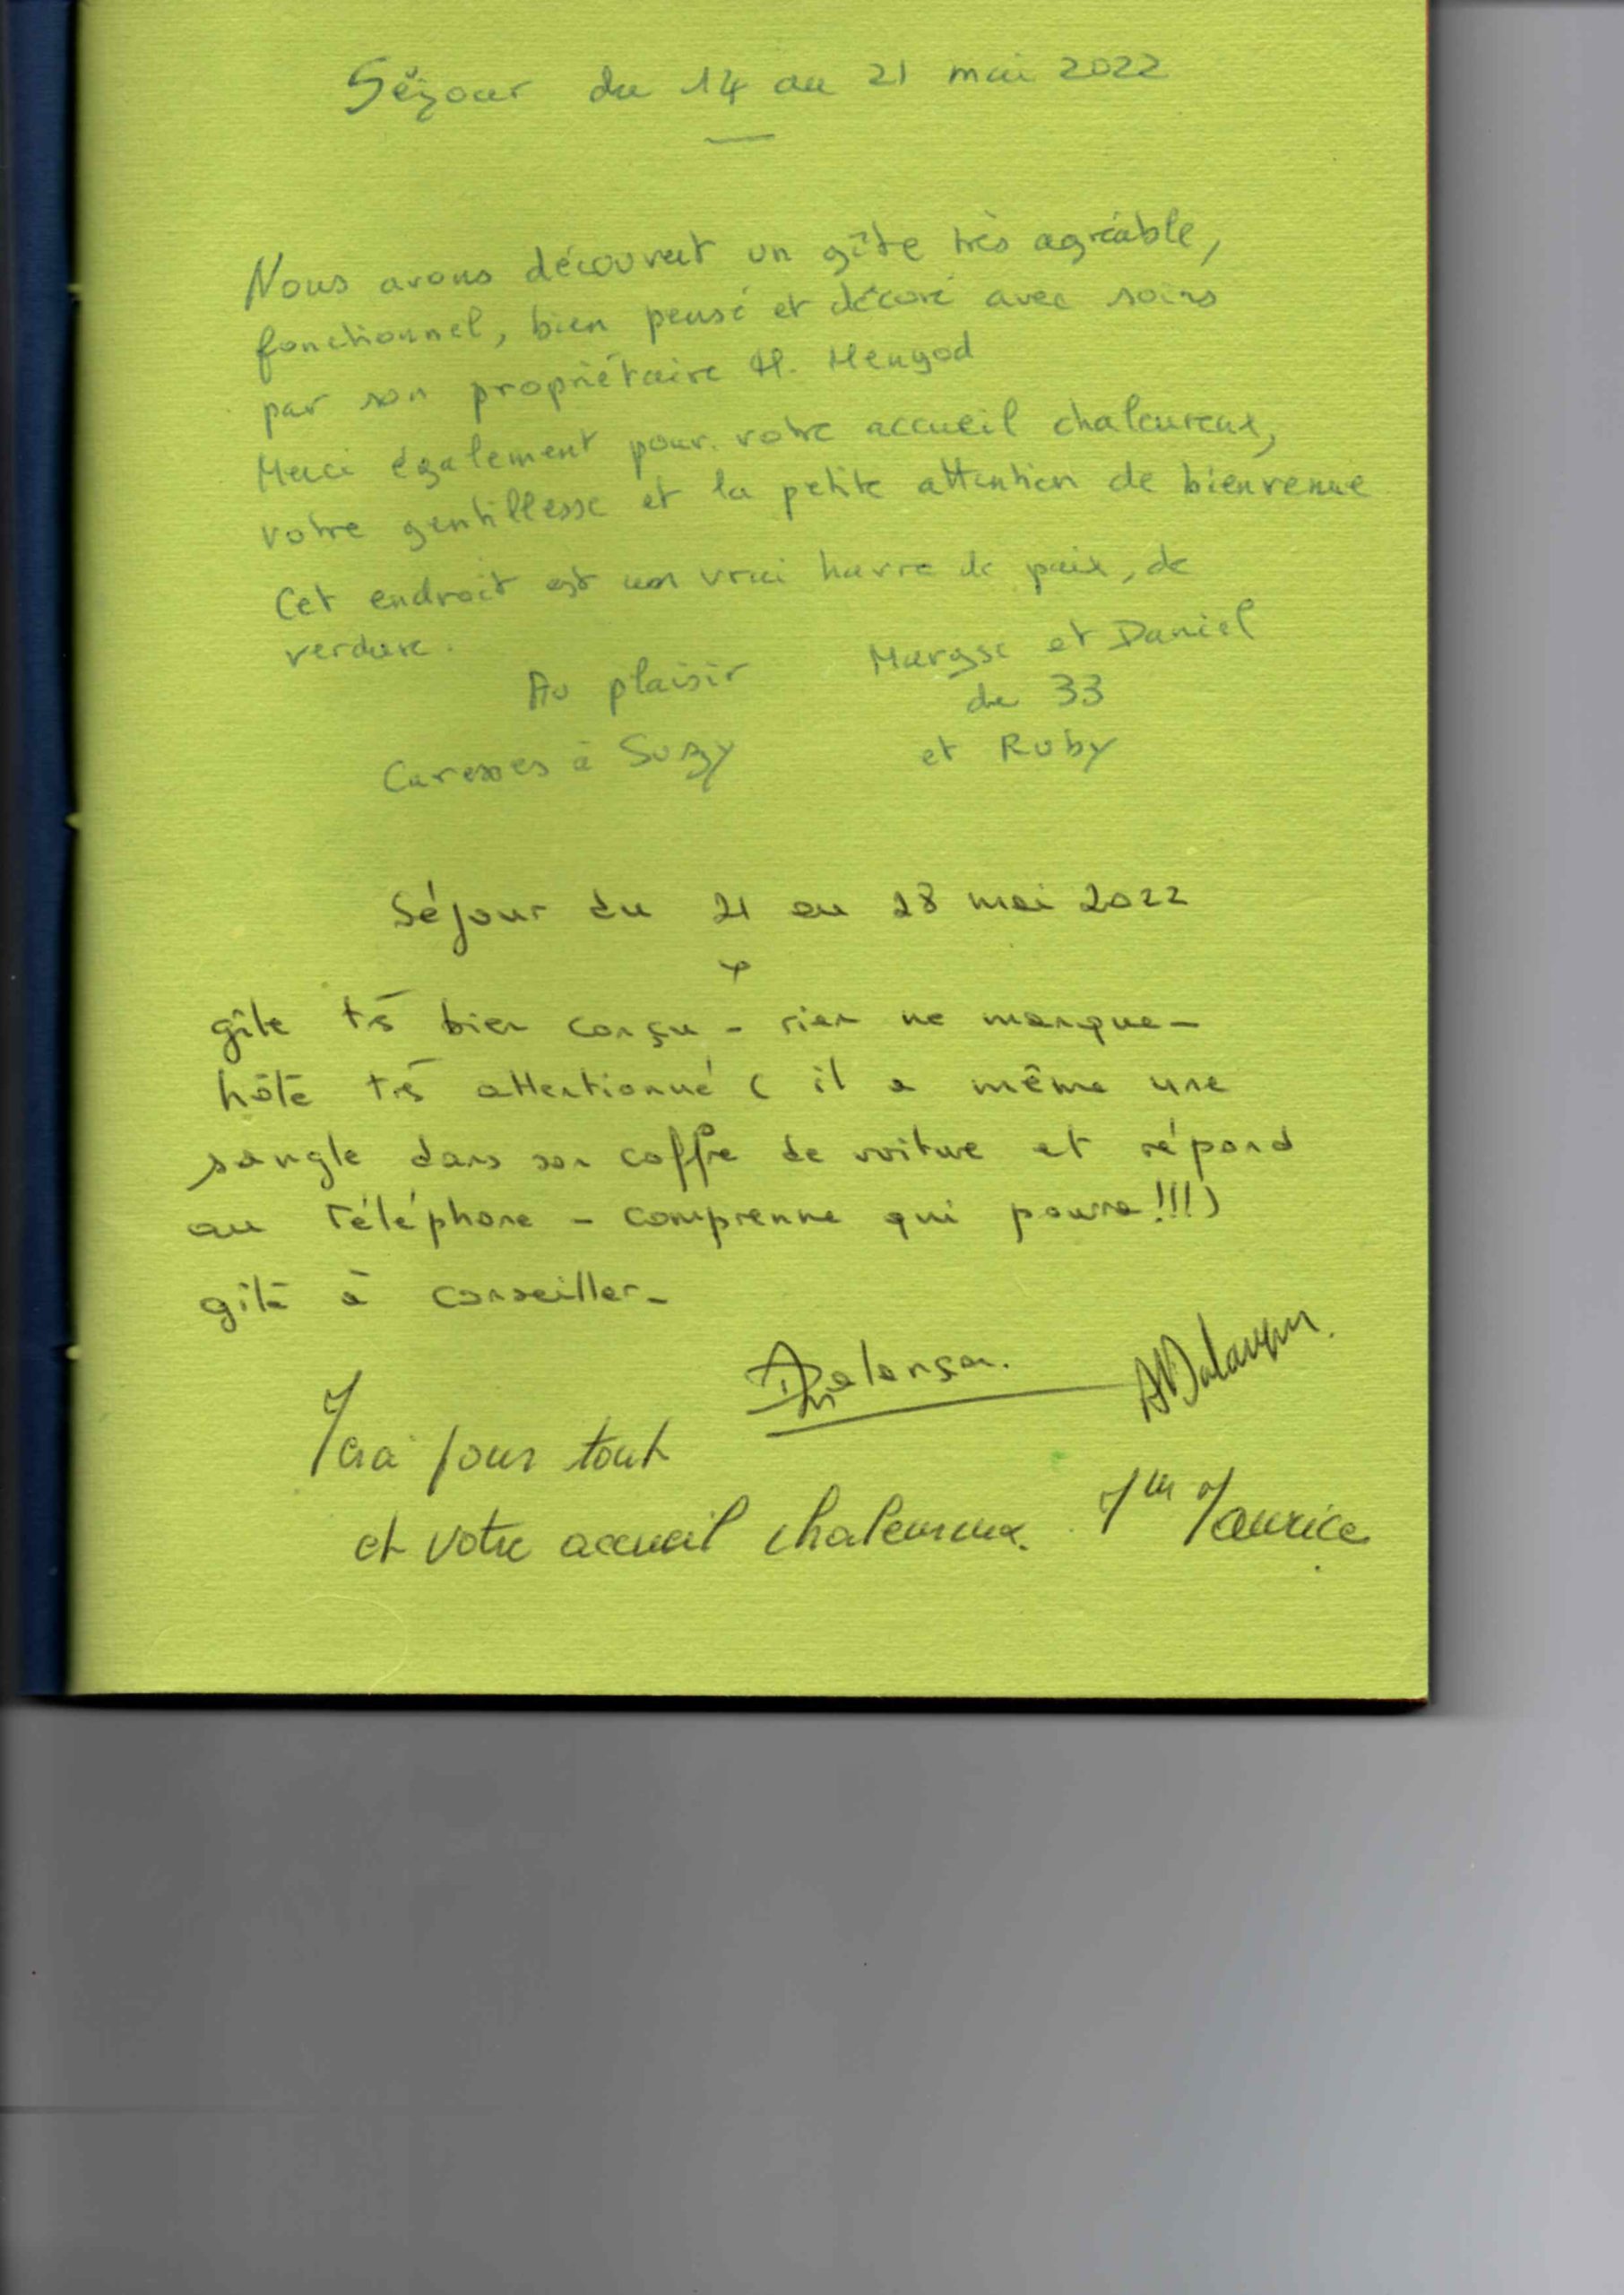 Séjour du 14 au 21 mai 2022
Nous avons découvert un gîte très agréable,
fonctionnel, bien pensé et décoré avec soins
par son propriétaire M. Mengod
Merci également pour votre accueil chaleureux,
votre gentillesse et la petite attention de bienvenue
Cet endroit est un vrai havre de paix, de
verdure.
Au plaisir Maryse et Daniel
du 33
Caresses à Suzy et Ruby
Séjour du 21 au 28 mai 2022
gîte trs bien conçu - rien ne manque -
hôte trs attentionné ( il a même une
sangle dans son coffre de voiture et répond
au téléphone - comprenne qui pourra !!!)
gîte à conseiller -
Merci pour tout
et votre accueil chaleureux. Mme Maurice